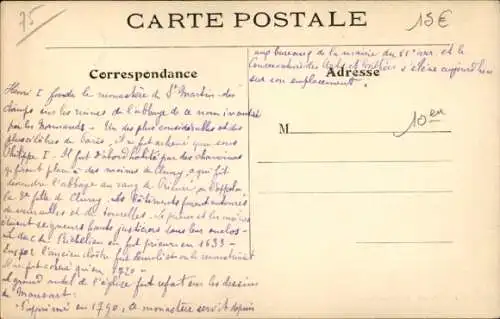 75
CARTE POSTALE
15€
Correspondance
Henri I fonda le monastère de St Martin des
champs sur les ruines de l'abbaye de ce nom incendiée
par les Normands - Un des plus considérables et des
plus célèbres de Paris, il ne fut achevé que sous
Philippe I. Il fut d'abord habité par des chanoines
qui firent place à des moines de Cluny, ce qui fit
descendre l'abbaye au rang de Prieuré, on l'appela
la 3e fille de Cluny. Les bâtiments furent entourés
de murailles et de tourelles. Le prieur et les moines
étaient seigneurs hauts justiciers sous leur enclos -
le duc de Richelieu en fut prieur en 1633 -
l'ancien cloître fut démoli et on le reconstruisit
il ne fut cessé qu'en 1720 -
Le grand autel de l'église fut refait sur les dessins
de Mansart.
Supprimé en 1790, ce monastère servit depuis
aux bureaux de la mairie du 6e arr. et le
Conservatoire des Arts et Métiers s'élève aujourd'hui
sur son emplacement.
Adresse
M
10